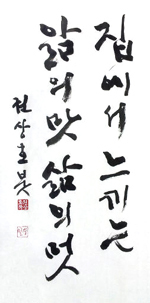 집에서 느끼는
앎의 맛 삶의 멋
전상호 붓